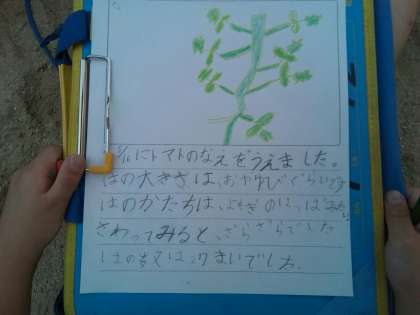 5/16にトマトのなえをうえました。
はの大きさは、おやゆびぐらいです
はのかたちは、よもぎのはっぱみたい
さわってみると、ざらざらでした
はの数は まいでした。